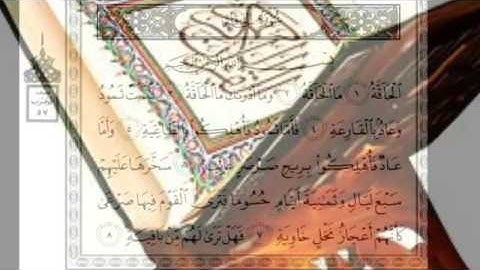 ٱلْحَآقَّةُ ١ مَا ٱلْحَآقَّةُ ٢ وَمَآ أَدْرَىٰكَ مَا ٱلْحَآقَّةُ ٣ كَذَّبَتْ ثَمُودُ
وَعَادٌۢ بِٱلْقَارِعَةِ ٤ فَأَمَّا ثَمُودُ فَأُهْلِكُوا۟ بِٱلطَّاغِيَةِ ٥ وَأَمَّا
عَادٌ فَأُهْلِكُوا۟ بِرِيحٍ صَرْصَرٍ عَاتِيَةٍ ٦ سَخَّرَهَا عَلَيْهِمْ
سَبْعَ لَيَالٍ وَثَمَٰنِيَةَ أَيَّامٍ حُسُومًا فَتَرَى ٱلْقَوْمَ فِيهَا صَرْعَىٰ
كَأَنَّهُمْ أَعْجَازُ نَخْلٍ خَاوِيَةٍ ٧ فَهَلْ تَرَىٰ لَهُم مِّنۢ بَاقِيَةٍ ٨
الحزب
٥٧